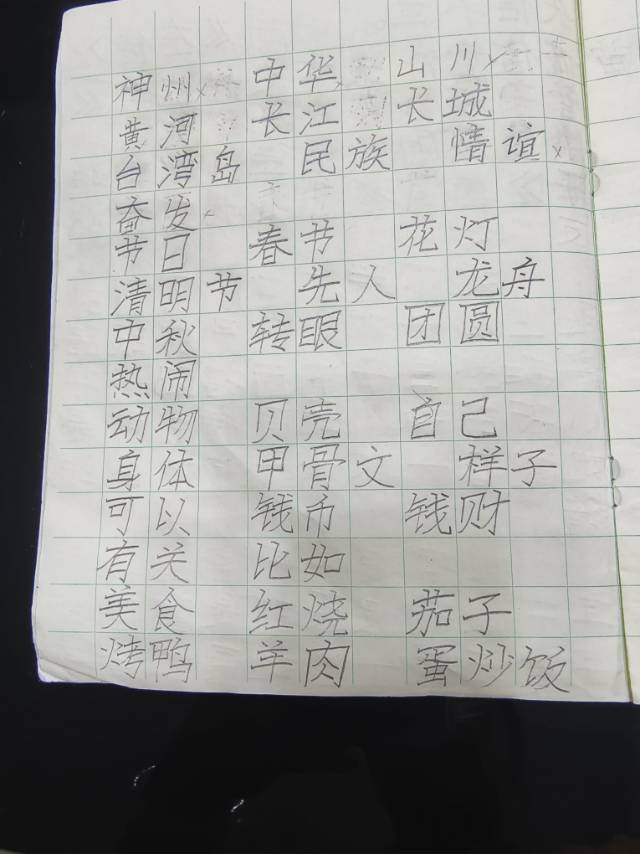 神州 中华 山川
黄河 长江 长城
台湾岛 民族 情谊
奋发
节日 春节 花灯
清明节 先人 龙舟
中秋 转眼 团圆
热闹
动物 贝壳 自己
身体 甲骨文 样子
可以 钱币 钱财
有关 比如
美食 红烧 茄子
烤鸭 羊肉 蛋炒饭